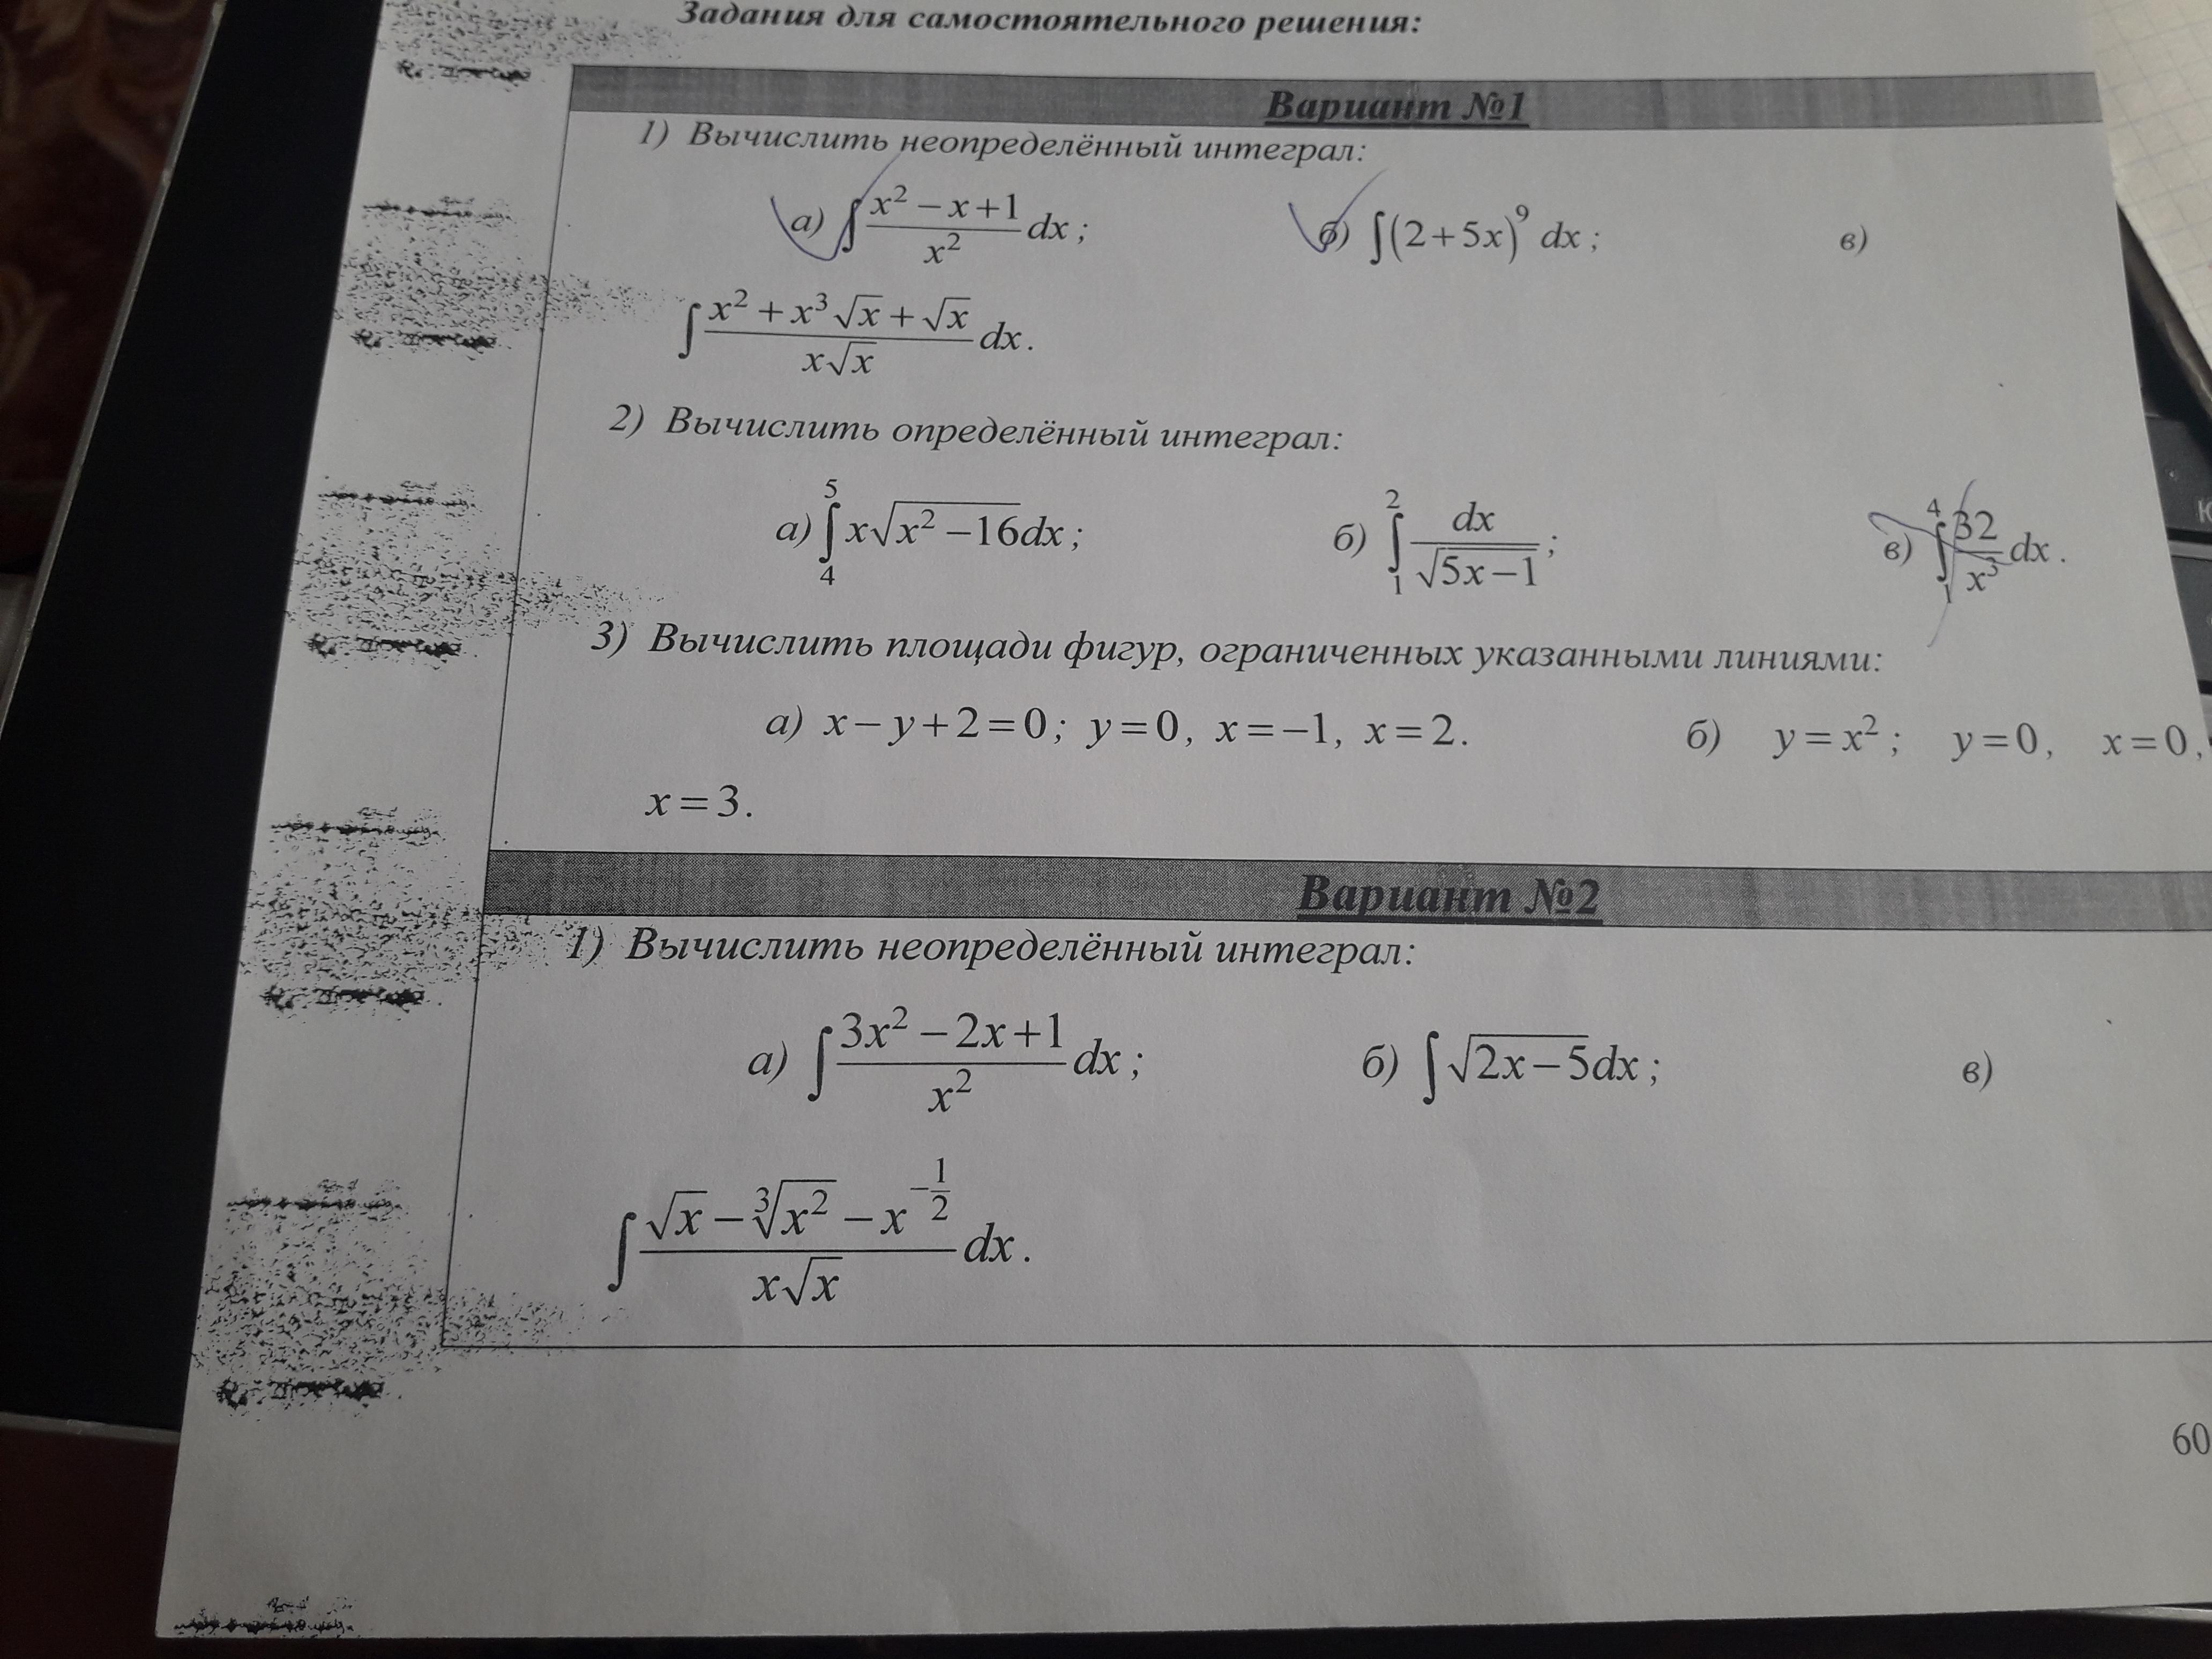 Задания для самостоятельного решения:
Вариант №1
1) Вычислить неопределённый интеграл:
а) ∫ (x² − x + 1)/x² dx ; б) ∫(2+5x)⁹ dx ; в)
∫ (x² + x³√x + √x)/(x√x) dx.
2) Вычислить определённый интеграл:
а) ∫₄⁵ x√(x² −16)dx ; б) ∫₁² dx/√(5x−1) ; в) ∫₁⁴ 32/x³ dx .
3) Вычислить площади фигур, ограниченных указанными линиями:
а) x − y + 2 = 0 ; y = 0, x = −1, x = 2. б) y = x² ; y = 0, x = 0,
x = 3.
Вариант №2
1) Вычислить неопределённый интеграл:
а) ∫ (3x² − 2x + 1)/x² dx ; б) ∫√(2x−5)dx ; в)
∫ (√x − ∛(x²) − x^(−1/2))/(x√x) dx .
60